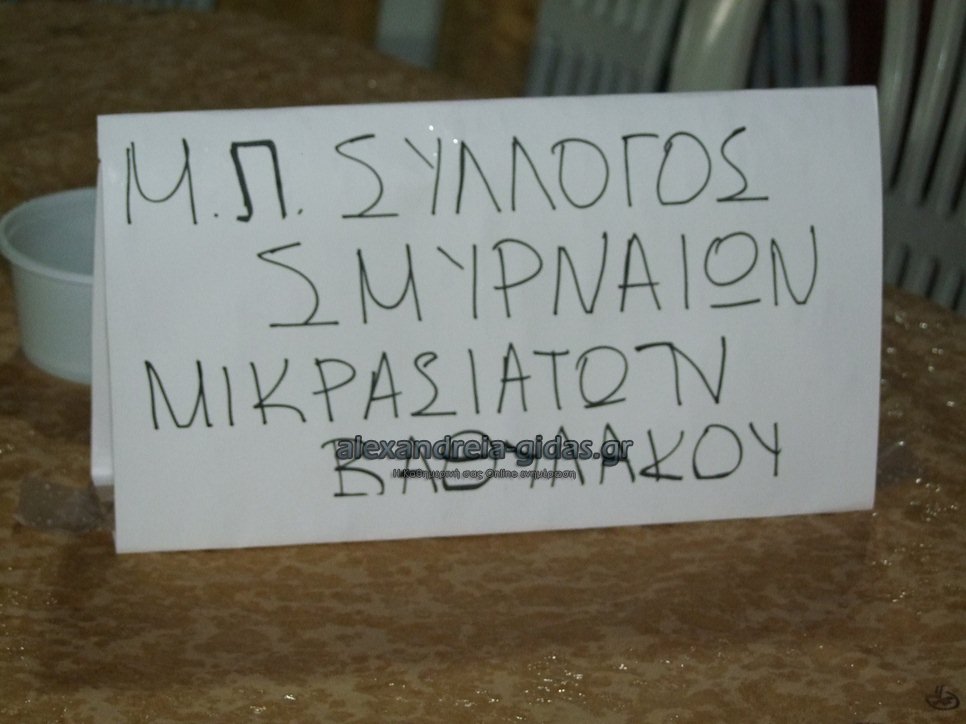 Μ.Π. ΣΥΛΛΟΓΟΣ
ΣΜΥΡΝΑΙΩΝ
ΜΙΚΡΑΣΙΑΤΩΝ
ΒΑΘΥΛΑΚΟΥ
alexandreia-gidas.gr
Η Καθημερινή σας Online ενημέρωση